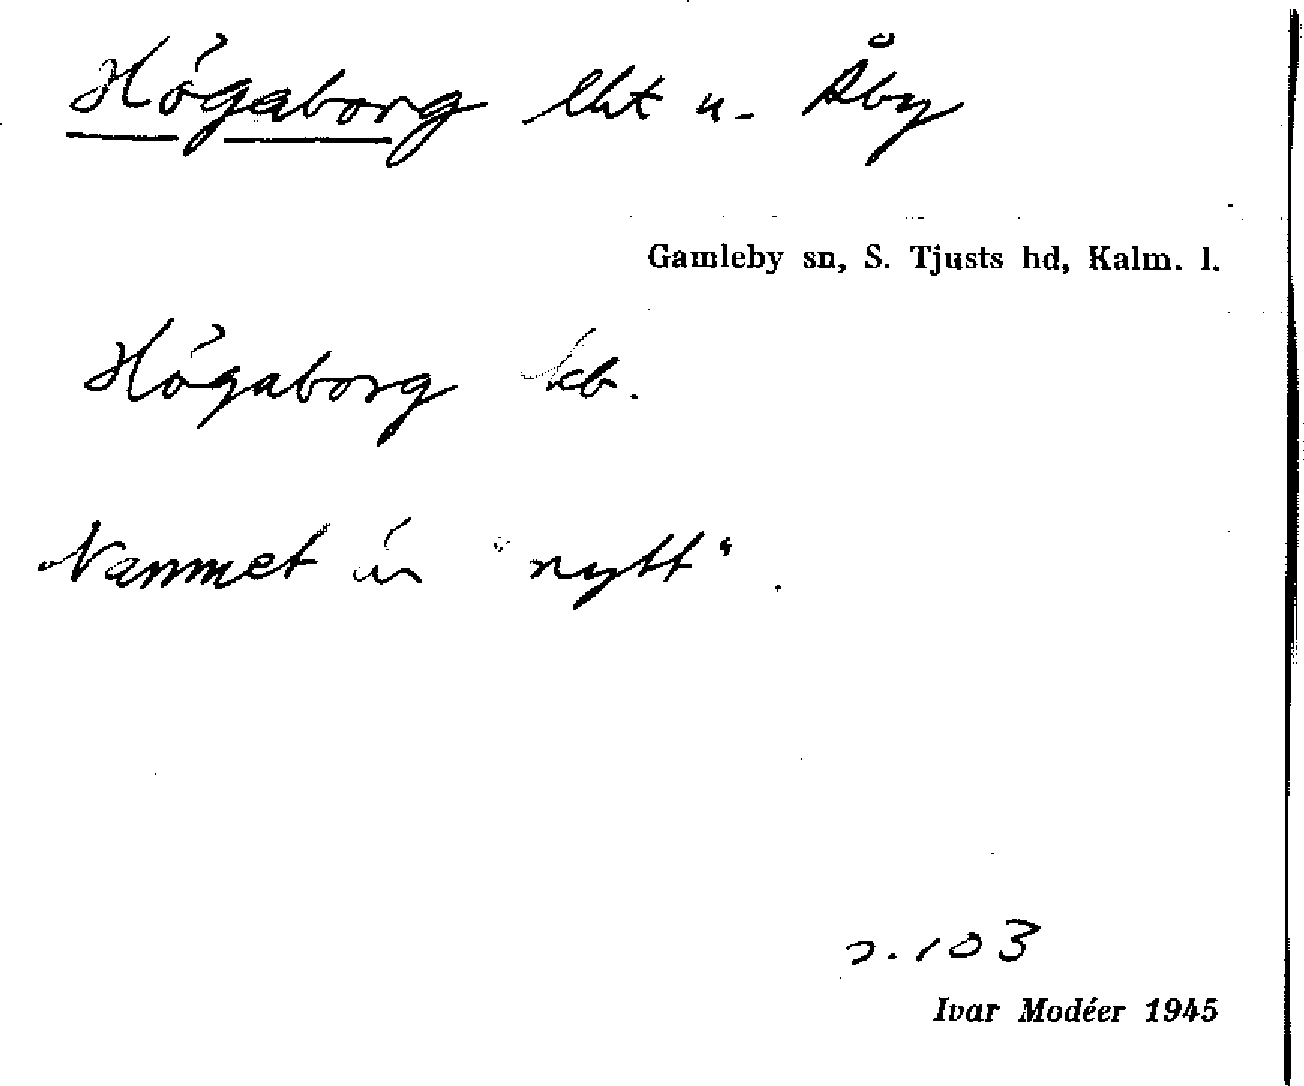 Högaborg lht u. Åby
Gamleby sn, S. Tjusts hd, Kalm. l.
Högaborg kb.
Namnet är "nytt".
s. 103
Ivar Modéer 1945